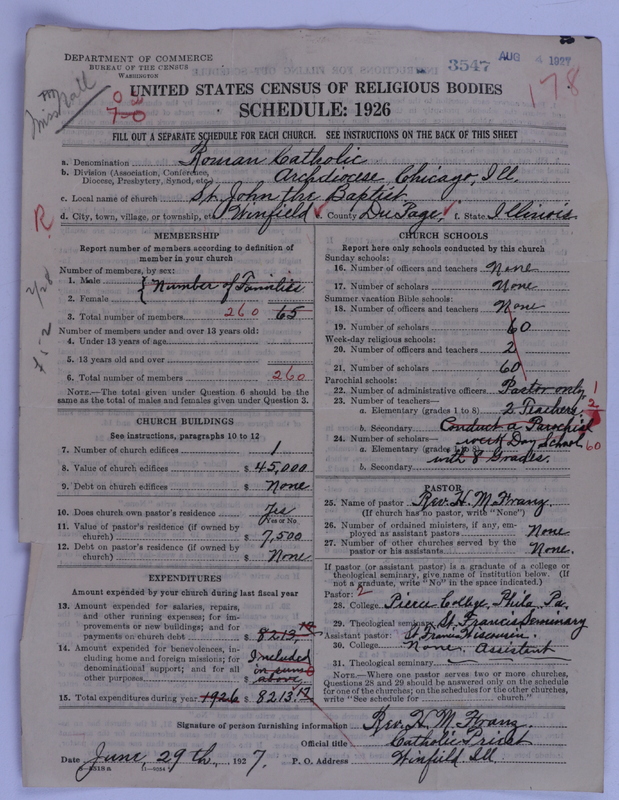 DEPARTMENT OF COMMERCE
BUREAU OF THE CENSUS
WASHINGTON
3547 AUG 4 1927
178
UNITED STATES CENSUS OF RELIGIOUS BODIES
SCHEDULE: 1926
FILL OUT A SEPARATE SCHEDULE FOR EACH CHURCH. SEE INSTRUCTIONS ON THE BACK OF THIS SHEET
a. Denomination Roman Catholic
b. Division (Association, Conference, Diocese, Presbytery, Synod, etc.) Archdiocese, Chicago, Ill.
c. Local name of church St. John the Baptist
d. City, town, village, or township, etc. Winfield County Du Page State Illinois
R
2/28
MEMBERSHIP
Report number of members according to definition of
member in your church
Number of members, by sex:
1. Male { Number of Families
2. Female {
3. Total number of members 260 65
Number of members under and over 13 years old:
4. Under 13 years of age
5. 13 years old and over
6. Total number of members 260
NOTE.—The total given under Question 6 should be the
same as the total of males and females given under Question 3.
CHURCH BUILDINGS
See instructions, paragraphs 10 to 12
7. Number of church edifices 1
8. Value of church edifices $ 45,000
9. Debt on church edifices $ None
10. Does church own pastor's residence? Yes
Yes or No
11. Value of pastor's residence (if owned by
church) $ 7,500
12. Debt on pastor's residence (if owned by
church) $ None
EXPENDITURES
Amount expended by your church during last fiscal year
13. Amount expended for salaries, repairs,
and other running expenses; for im-
provements or new buildings; and for
payments on church debt $ 8213.14
14. Amount expended for benevolences, in-
cluding home and foreign missions; for
denominational support; and for all
other purposes $ Included in sum above
15. Total expenditures during year 1926 $ 8213.17
CHURCH SCHOOLS
Report here only schools conducted by this church
Sunday schools:
16. Number of officers and teachers None
17. Number of scholars None
Summer vacation Bible schools:
18. Number of officers and teachers None
19. Number of scholars 60
Week-day religious schools:
20. Number of officers and teachers 2
21. Number of scholars 60
Parochial schools:
22. Number of administrative officers Pastor only 1
23. Number of teachers—
a. Elementary (grades 1 to 8) 2 Teachers 2
b. Secondary Conduct a Parochial
24. Number of scholars— week Day School
a. Elementary (grades 1 to 8) with 8 Grades. 60
b. Secondary
PASTOR
25. Name of pastor Rev. H. M. Franz
(If church has no pastor, write "None")
26. Number of ordained ministers, if any, em-
ployed as assistant pastors None
27. Number of other churches served by the
pastor or his assistants None.
If pastor (or assistant pastor) is a graduate of a college or
theological seminary, give name of institution below. (If
not a graduate, write "No" in the space indicated.)
Pastor: 2
28. College Pierce College, Phila. Pa.
29. Theological seminary St. Francis Seminary
Assistant pastor: St Francis Wisconsin.
30. College None. Assistant
31. Theological seminary
NOTE.—Where one pastor serves two or more churches,
Questions 28 and 29 should be answered only on the schedule
for one of the churches; on the schedules for the other churches,
write "See schedule for church."
Signature of person furnishing information Rev. H. M. Franz
Official title Catholic Priest
Date June 29th, 1927. P. O. Address Winfield Ill